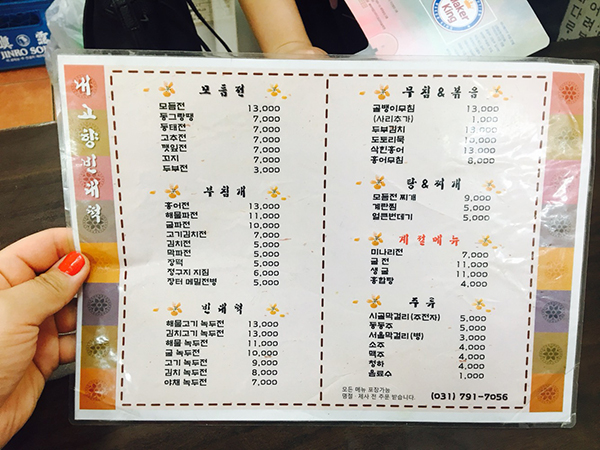 내고향빈대떡
모듬전
모듬전 13,000
동그랑땡 7,000
동태전 7,000
고추전 7,000
깻잎전 7,000
꼬지 7,000
두부전 3,000
부침개
홍어전 13,000
해물파전 11,000
굴파전 10,000
고기김치전 7,000
김치전 5,000
먹파전 5,000
장떡 5,000
정구지 지짐 6,000
장터 메밀전병 5,000
빈대떡
해물고기 녹두전 13,000
김치고기 녹두전 13,000
해물 녹두전 11,000
굴 녹두전 10,000
고기 녹두전 9,000
김치 녹두전 8,000
야채 녹두전 7,000
무침&볶음
골뱅이무침 13,000
(사리추가) 1,000
두부김치 13,000
도토리묵 10,000
삭힌홍어 13,000
홍어무침 8,000
탕&찌개
모듬전 찌개 9,000
계란찜 5,000
얼큰번데기 5,000
계절메뉴
미나리전 7,000
굴 전 11,000
생 굴 11,000
홍합탕 4,000
주류
시골막걸리(주전자) 5,000
동동주 5,000
서울막걸리(병) 3,000
소주 4,000
맥주 4,000
청하 4,000
음료수 1,000
모든 메뉴 포장가능
명절·제사 전 주문 받습니다. (031) 791-7056
JINRO SOJ
Maker
King